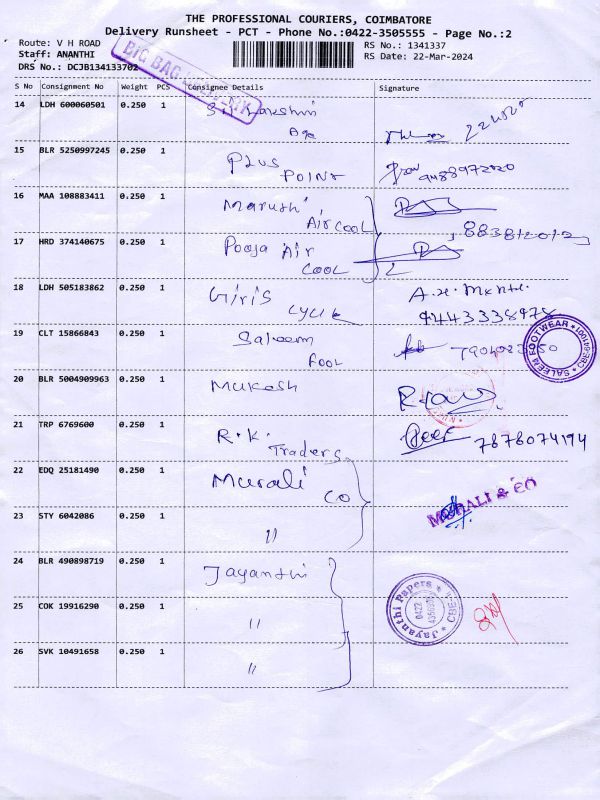 THE PROFESSIONAL COURIERS, COIMBATORE
Delivery Runsheet - PCT - Phone No.:0422-3505555 - Page No.:2
Route: V H ROAD
RS No.: 1341337
Staff: ANANTHI
RS Date: 22-Mar-2024
DRS No.: DCJB134133702
BIG BAG
S No Consignment No Weight PCS Consignee Details Signature
14 LDH 600060501 0.250 1
15 BLR 5250997245 0.250 1 Plus Point 9488972020
16 MAA 108883411 0.250 1 Maruthi Air Cool
17 HRD 374140675 0.250 1 Pooja Air Cool
18 LDH 505183862 0.250 1 Giris 9443338978
19 CLT 15866843 0.250 1 Saleem Foot
SALEEM FOOTWEAR
20 BLR 5004909963 0.250 1 Mukesh
21 TRP 6769600 0.250 1 R.K. Traders 7878074194
22 EDQ 25181490 0.250 1 Murali Co
MURALI & CO
23 STY 6042086 0.250 1 "
24 BLR 490898719 0.250 1 Jayanthi
Jayanthi Papers CBE
0422
25 COK 19916290 0.250 1 "
26 SVK 10491658 0.250 1 "